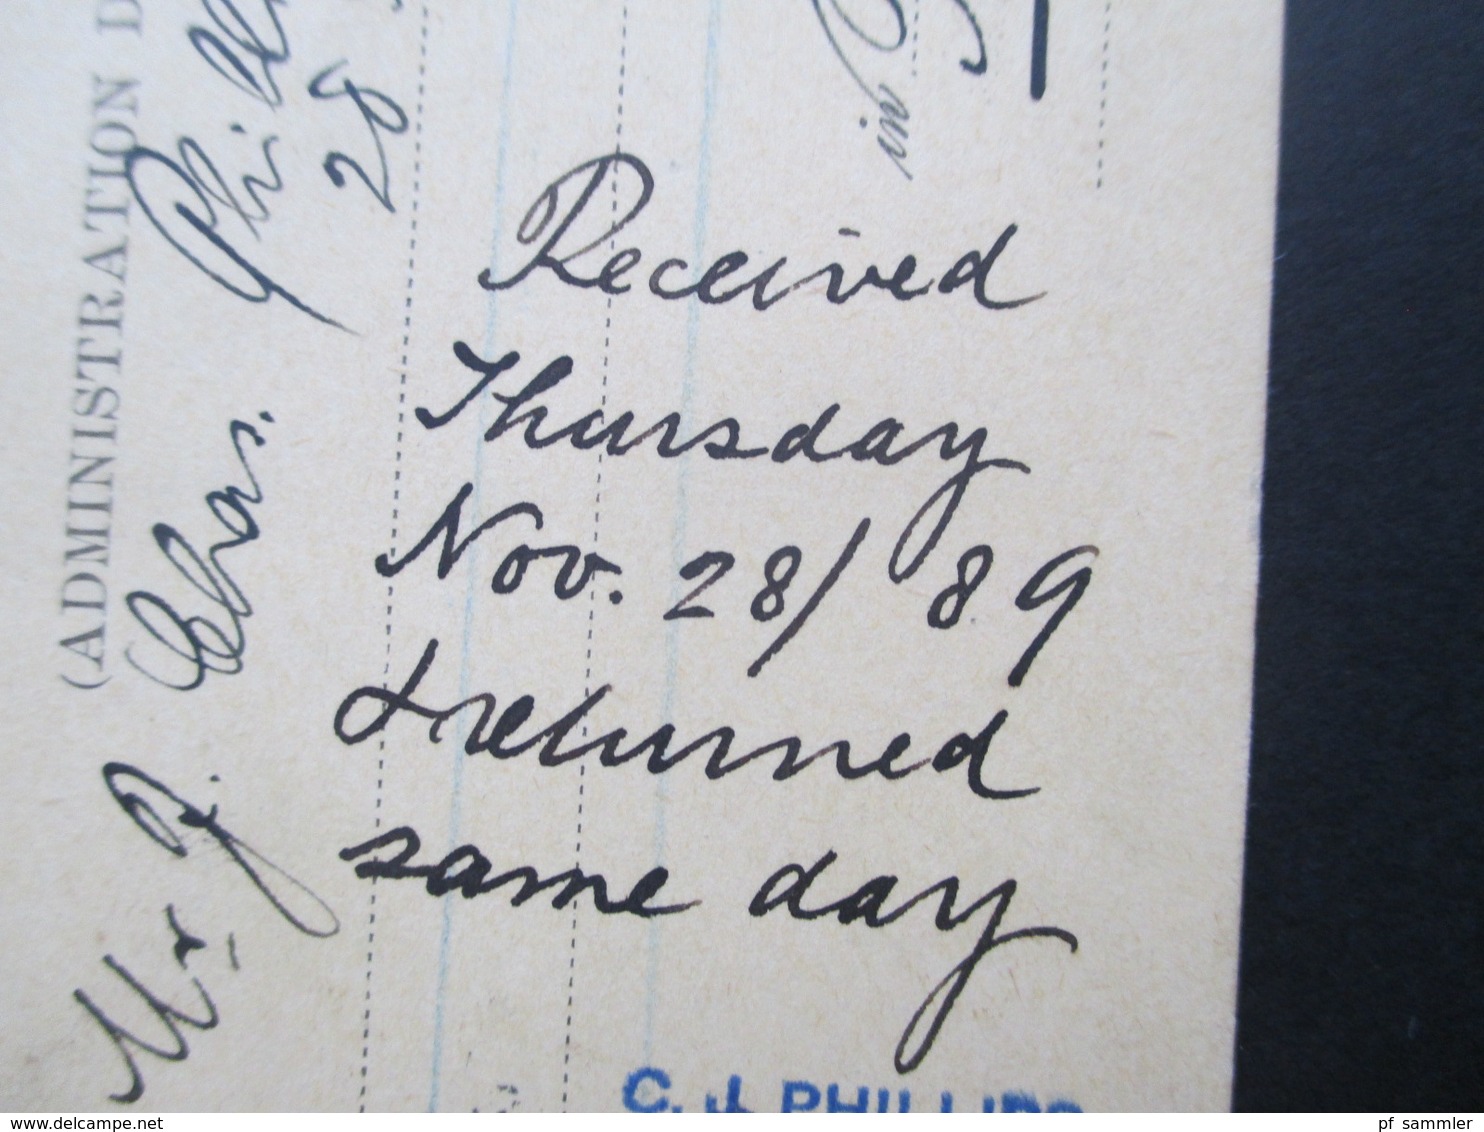 (ADMINISTRATION D
Mr J. Chas.
28
in
Received
Thursday
Nov. 28/89
& returned
same day
C. J. PHILLIPS
delcampe.net
pf_sammler